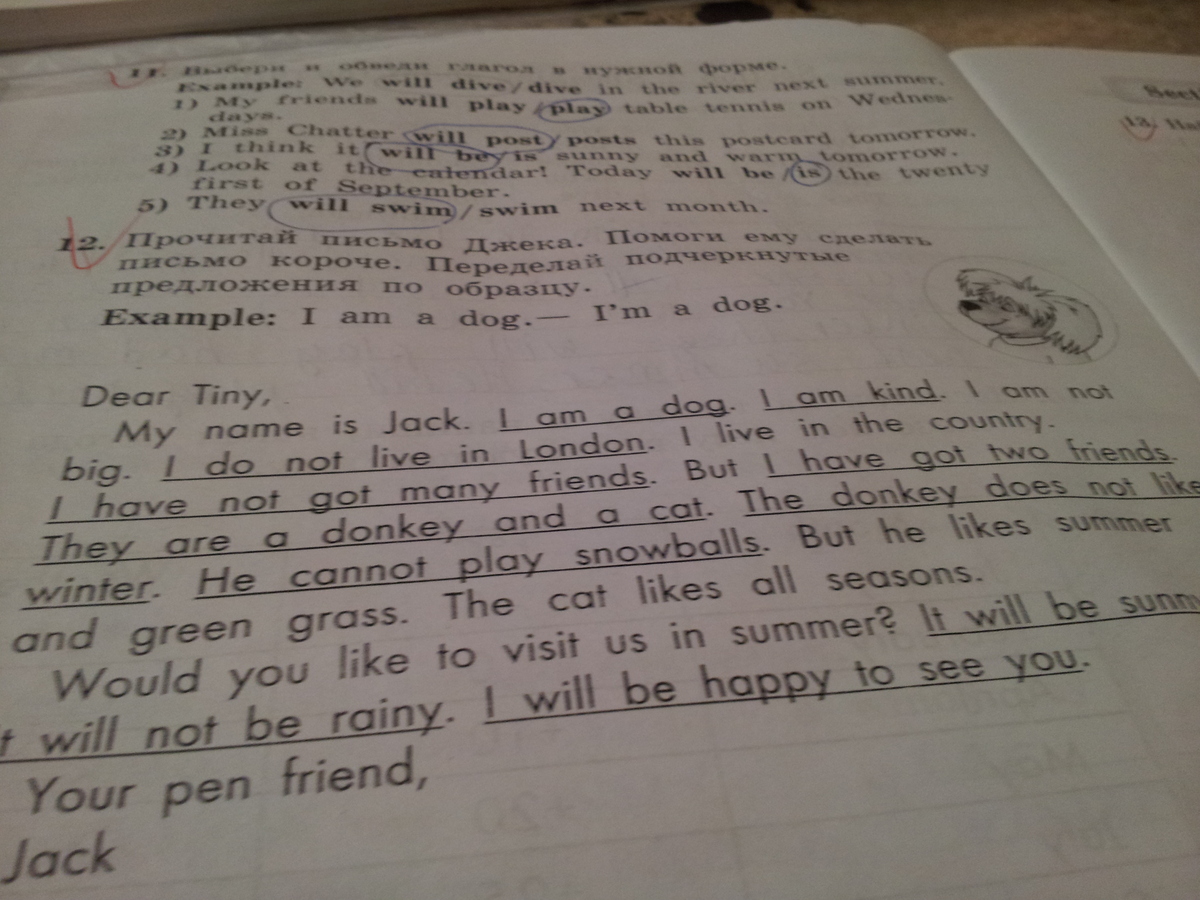 11. Выбери и обведи глагол в нужной форме.
Example: We will dive/dive in the river next summer.
1) My friends will play/play table tennis on Wednes-
days.
2) Miss Chatter will post/posts this postcard tomorrow.
3) I think it will be/is sunny and warm tomorrow.
4) Look at the calendar! Today will be/is the twenty
first of September.
5) They will swim/swim next month.
12. Прочитай письмо Джека. Помоги ему сделать
письмо короче. Переделай подчеркнутые
предложения по образцу.
Example: I am a dog.— I'm a dog.
Dear Tiny,
My name is Jack. I am a dog. I am kind. I am not
big. I do not live in London. I live in the country.
I have not got many friends. But I have got two friends.
They are a donkey and a cat. The donkey does not like
winter. He cannot play snowballs. But he likes summer
and green grass. The cat likes all seasons.
Would you like to visit us in summer? It will be sunn
t will not be rainy. I will be happy to see you.
Your pen friend,
Jack
Sect
13.